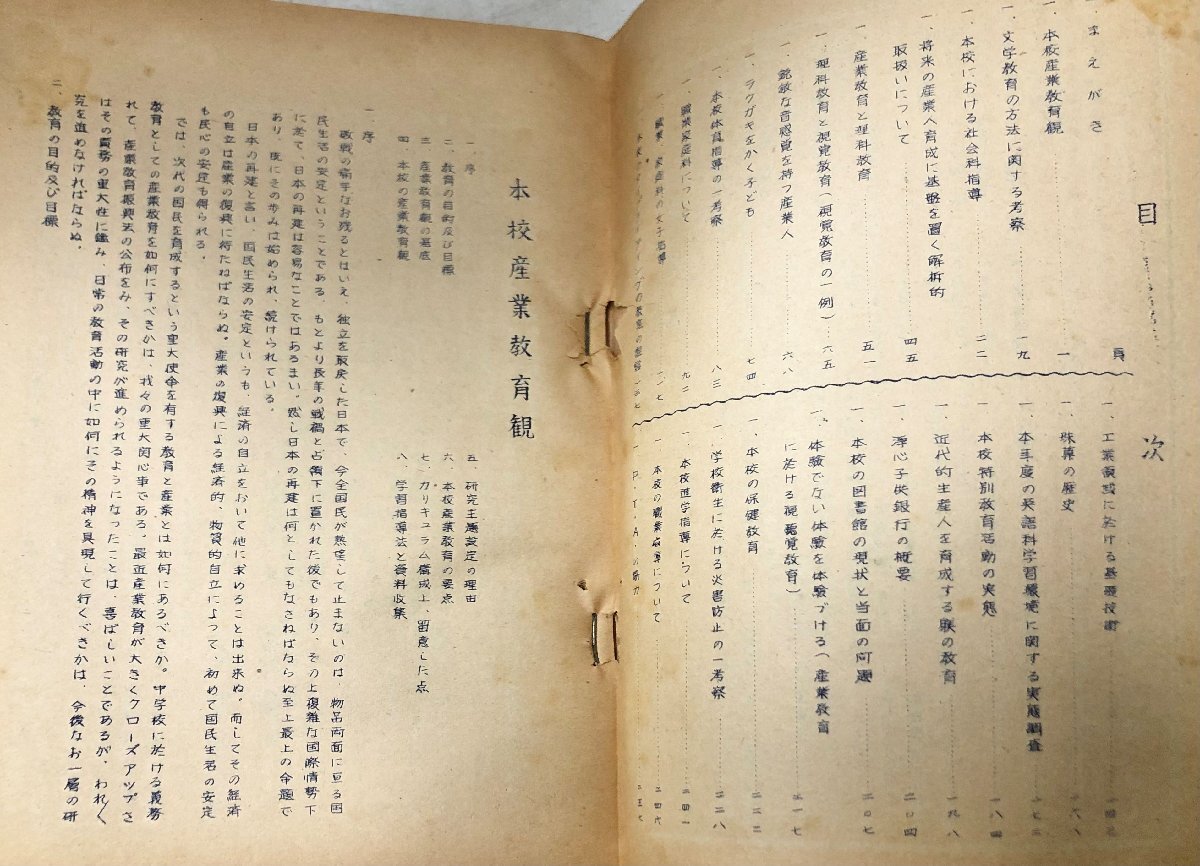 目次
頁
一、まえがき
一、本校産業教育観 一
一、文学教育の方法に関する考察 一九
一、本校における社会科指導 二二
一、将来の産業人育成に基盤を置く解析的
取扱いについて 四五
一、産業教育と理科教育 五一
一、理科教育と視覚教育(視覚教育の一例) 六五
一、鋭敏な音感覚を持つ産業人 六八
一、ラクガキをかく子ども 七四
一、本校体育指導の一考察 八三
一、職業家庭科について 九二
一、職業・家庭科の女子指導
一、工業領域に於ける基礎技術
一、珠算の歴史
一、本年度の英語科学習環境に関する実態調査
一、本校特別教育活動の実態 一八四
一、近代的生産人を育成する躾の教育 一九八
一、浄心子供銀行の概要 二〇四
一、本校の図書館の現状と当面の問題 二〇七
一、体験でない体験を体験づける(産業教育
に於ける視聴覚教育) 二一七
一、本校の保健教育 二二三
一、学校衛生に於ける災害防止の一考察 二二八
一、本校進学指導について 二四一
一、本校の職業指導について 二四六
一、P.T.A.
本校産業教育観
一、序
二、教育の目的及び目標
三、産業教育観の基底
四、本校の産業教育観
五、研究主題設定の理由
六、本校産業教育の要点
七、カリキュラム構成上、留意した点
八、学習指導法と資料収集
一、序
敗戦の痛手なお残るとはいえ、独立を取戻した日本で、今全国民が熱望して止まないのは、物心両面に亘る国
民生活の安定ということである。もとより長年の戦禍と占領下に置かれた後でもあり、その上複雑な国際情勢下
に於て、日本の再建は容易なことではあるまい。然し日本の再建は何としてもなさねばならぬ至上最上の命題で
あり、既にその歩みは始められ、続けられている。
日本の再建と言い、国民生活の安定というも、経済の自立をおいて他に求めることは出来ぬ。而してその経済
の自立は産業の復興に待たねばならぬ。産業の復興による経済的、物質的自立によって、初めて国民生活の安定
も民心の安定も得られる。
では、次代の国民を育成するという重大使命を有する教育と産業とは如何にあるべきか。中学校に於ける義務
教育としての産業教育を如何にすべきかは、我々の重大関心事である。最近産業教育が大きくクローズアップさ
れて、産業教育振興法の公布をみ、その研究が進められるようになったことは、喜ばしいことであるが、われ〱
はその責務の重大性に鑑み、日常の教育活動の中に如何にその精神を具現して行くべきかは、今後なお一層の研
究を進めなければならぬ。
二、教育の目的及び目標